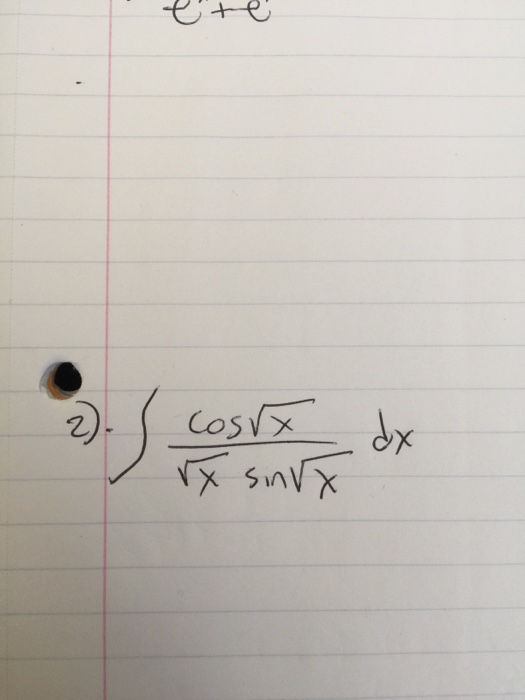 2). ∫ cos√x / √x sin√x dx